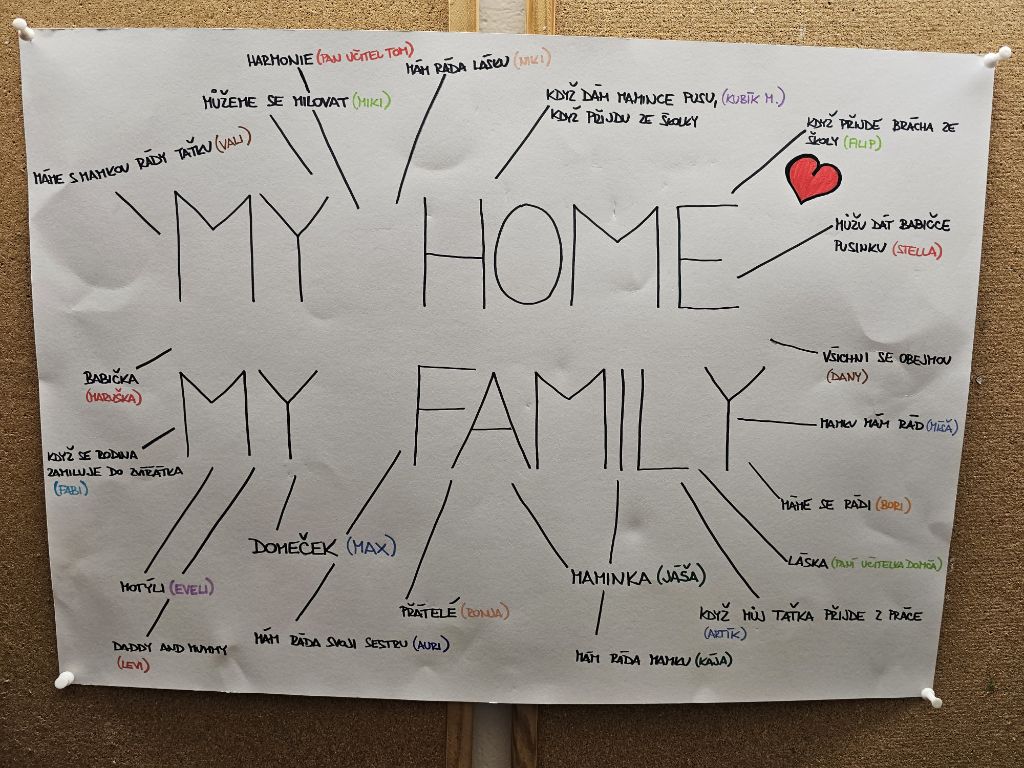 HARMONIE (PAN UČITEL TOM)
MÁM RÁDA LÁSKU (NIKI)
MŮŽEME SE MILOVAT (MIKI)
KDYŽ DÁM MAMINCE PUSU, (KUBÍK M.)
KDYŽ PŘIJDU ZE ŠKOLKY
KDYŽ PŘIJDE BRÁCHA ZE
ŠKOLY (FILIP)
MÁME S MAMKOU RÁDY TAŤKU (VALI)
MY HOME
MŮŽU DÁT BABIČCE
PUSINKU (STELLA)
VŠICHNI SE OBEJMOU
(DANY)
BABIČKA
(MARUŠKA)
MY FAMILY
MAMKU MÁM RÁD (MÍŠA)
KDYŽ SE RODINA
ZAMILUJE DO ZVÍŘÁTKA
(FABI)
MÁME SE RÁDI (BORI)
DOMEČEK (MAX)
LÁSKA (PANÍ UČITELKA DOMČA)
MOTÝLI (EVELI)
MAMINKA (JÁŠA)
PŘÁTELÉ (RONJA)
KDYŽ MŮJ TAŤKA PŘIJDE Z PRÁCE
(ARTÍK)
DADDY AND MUMMY
(LEVI)
MÁM RÁDA SVOJI SESTRU (AURI)
MÁM RÁDA MAMKU (KÁJA)